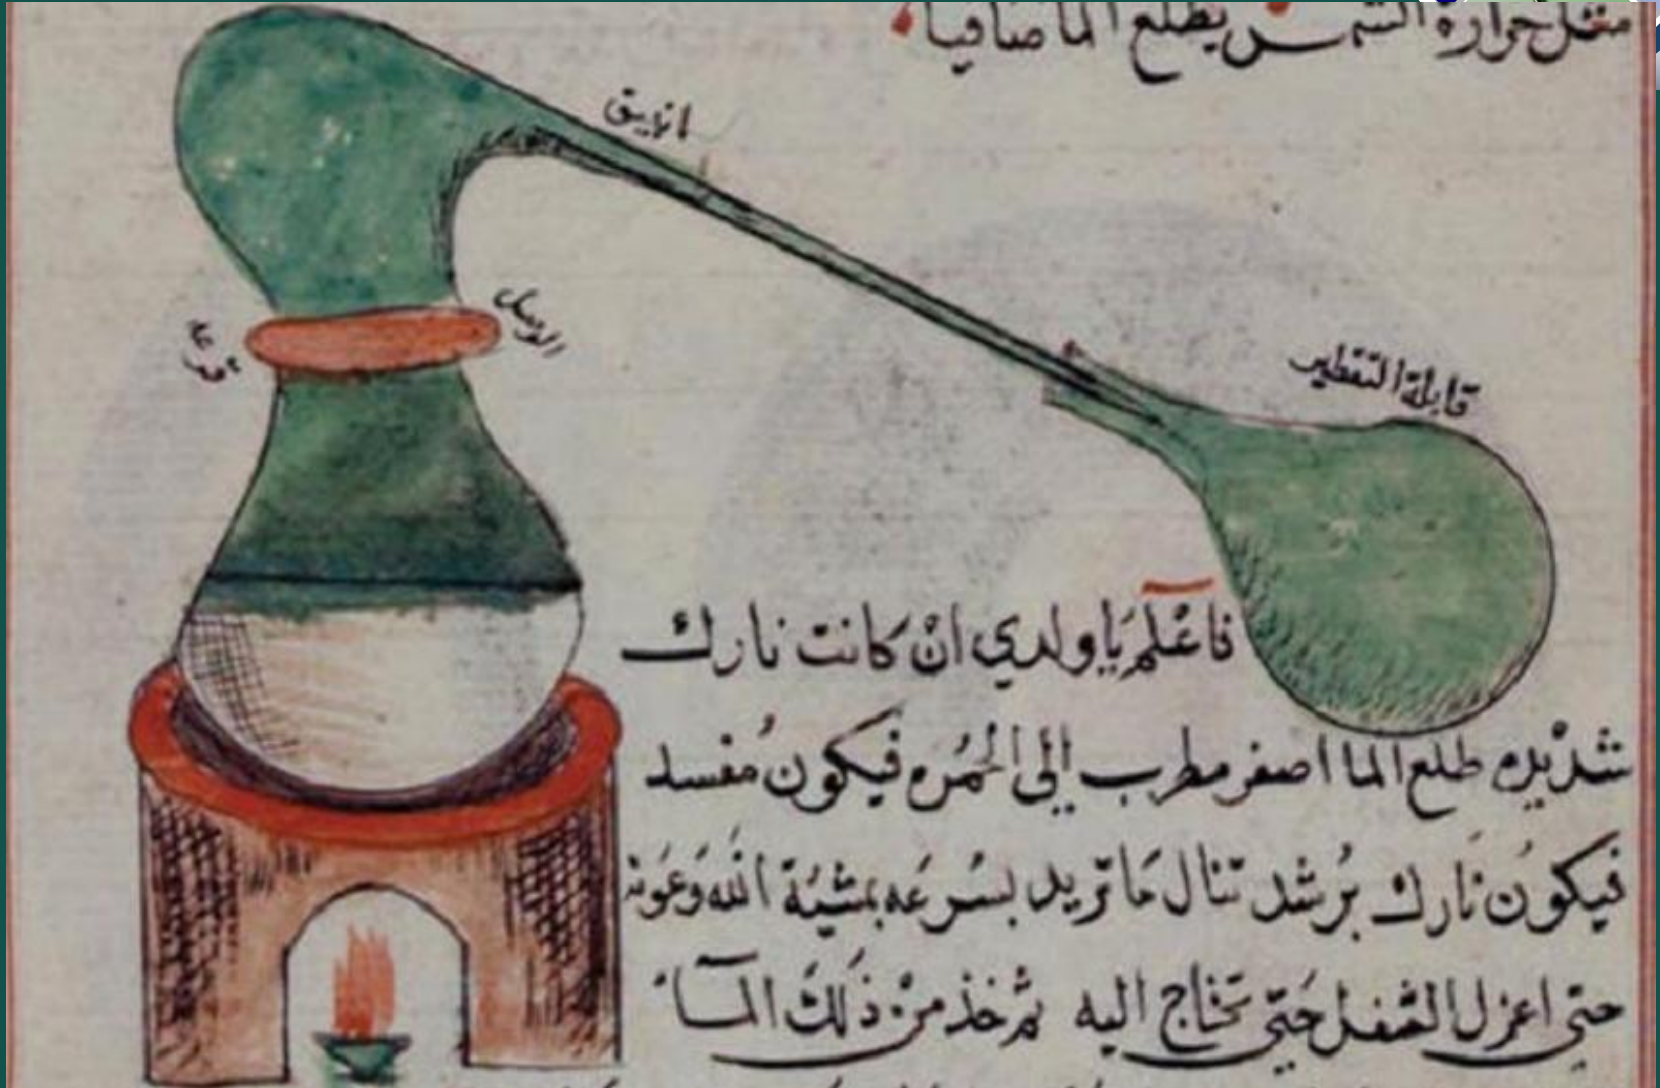 مثل حرارة الشمس يطلع الما صافيا
انبيق
الوصل
قرعة
قابلة التقطير
فاعْلم يَا ولدي انْ كانت نارك
شديده طلع الما اصفر مطرب إلى الحُمُره فيكون مُفسد
فيكوُن نَارك بُرشد تنال مَا تريد بسُرعَه بمشيَة الله وَعَونه
حتى اعزل الثفل حَتى تحتاج اليه ثم خذ منْ ذَلكَ المآءُ